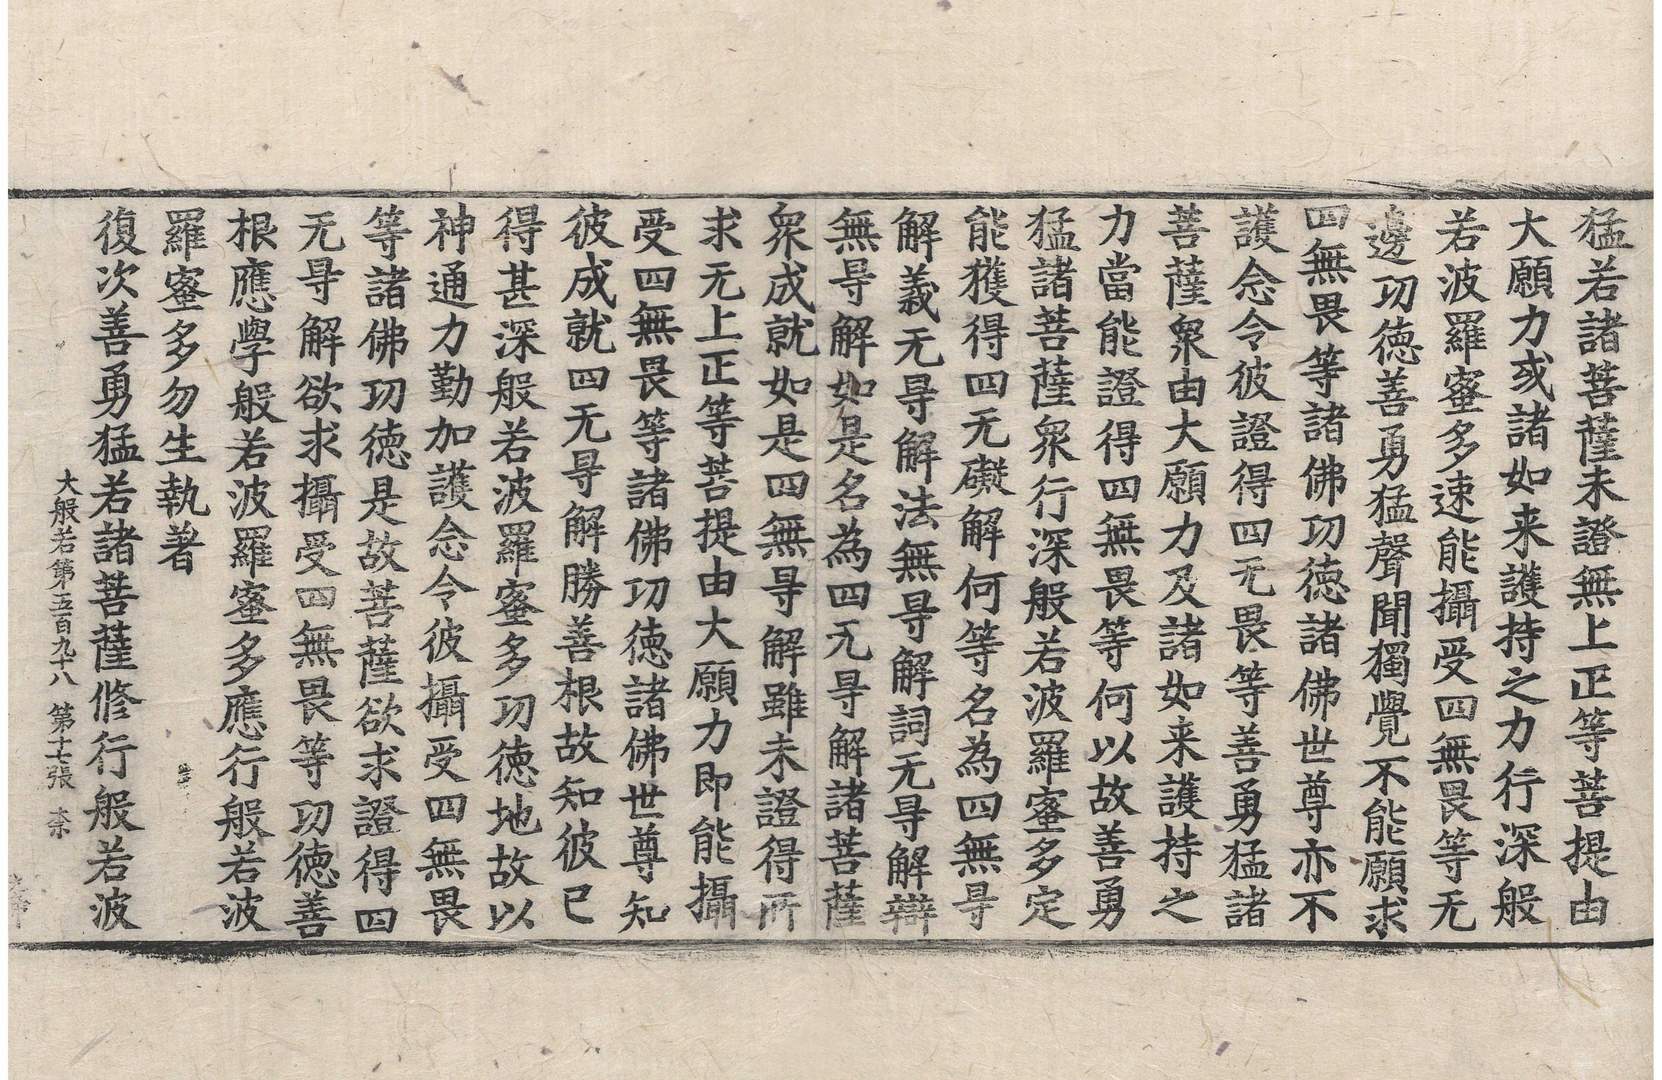 猛若諸菩薩未證無上正等菩提由
大願力或諸如来護持之力行深般
若波羅蜜多速能攝受四無畏等无
邊功德善勇猛聲聞獨覺不能願求
四無畏等諸佛功德諸佛世尊亦不
護念令彼證得四无畏等善勇猛諸
菩薩衆由大願力及諸如来護持之
力當能證得四無畏等何以故善勇
猛諸菩薩衆行深般若波羅蜜多定
能獲得四无礙解何等名為四無㝵
解義无㝵解法無㝵解詞无㝵解辯
無㝵解如是名為四无㝵解諸菩薩
衆成就如是四無㝵解雖未證得所
求无上正等菩提由大願力即能攝
受四無畏等諸佛功德諸佛世尊知
彼成就四无㝵解勝善根故知彼已
得甚深般若波羅蜜多功德地故以
神通力勤加護念令彼攝受四無畏
等諸佛功德是故菩薩欲求證得四
无㝵解欲求攝受四無畏等功德善
根應學般若波羅蜜多應行般若波
羅蜜多勿生執著
復次善勇猛若諸菩薩修行般若波
大般若第五百九十八 第十七張 柰